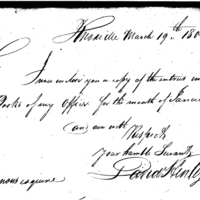 Knoxville March 19th 180
I now inclose you a copy of the entries in
Books of my Office for the month of Januar
and am with
Respect
Your humble Servant
David Henly
esquire